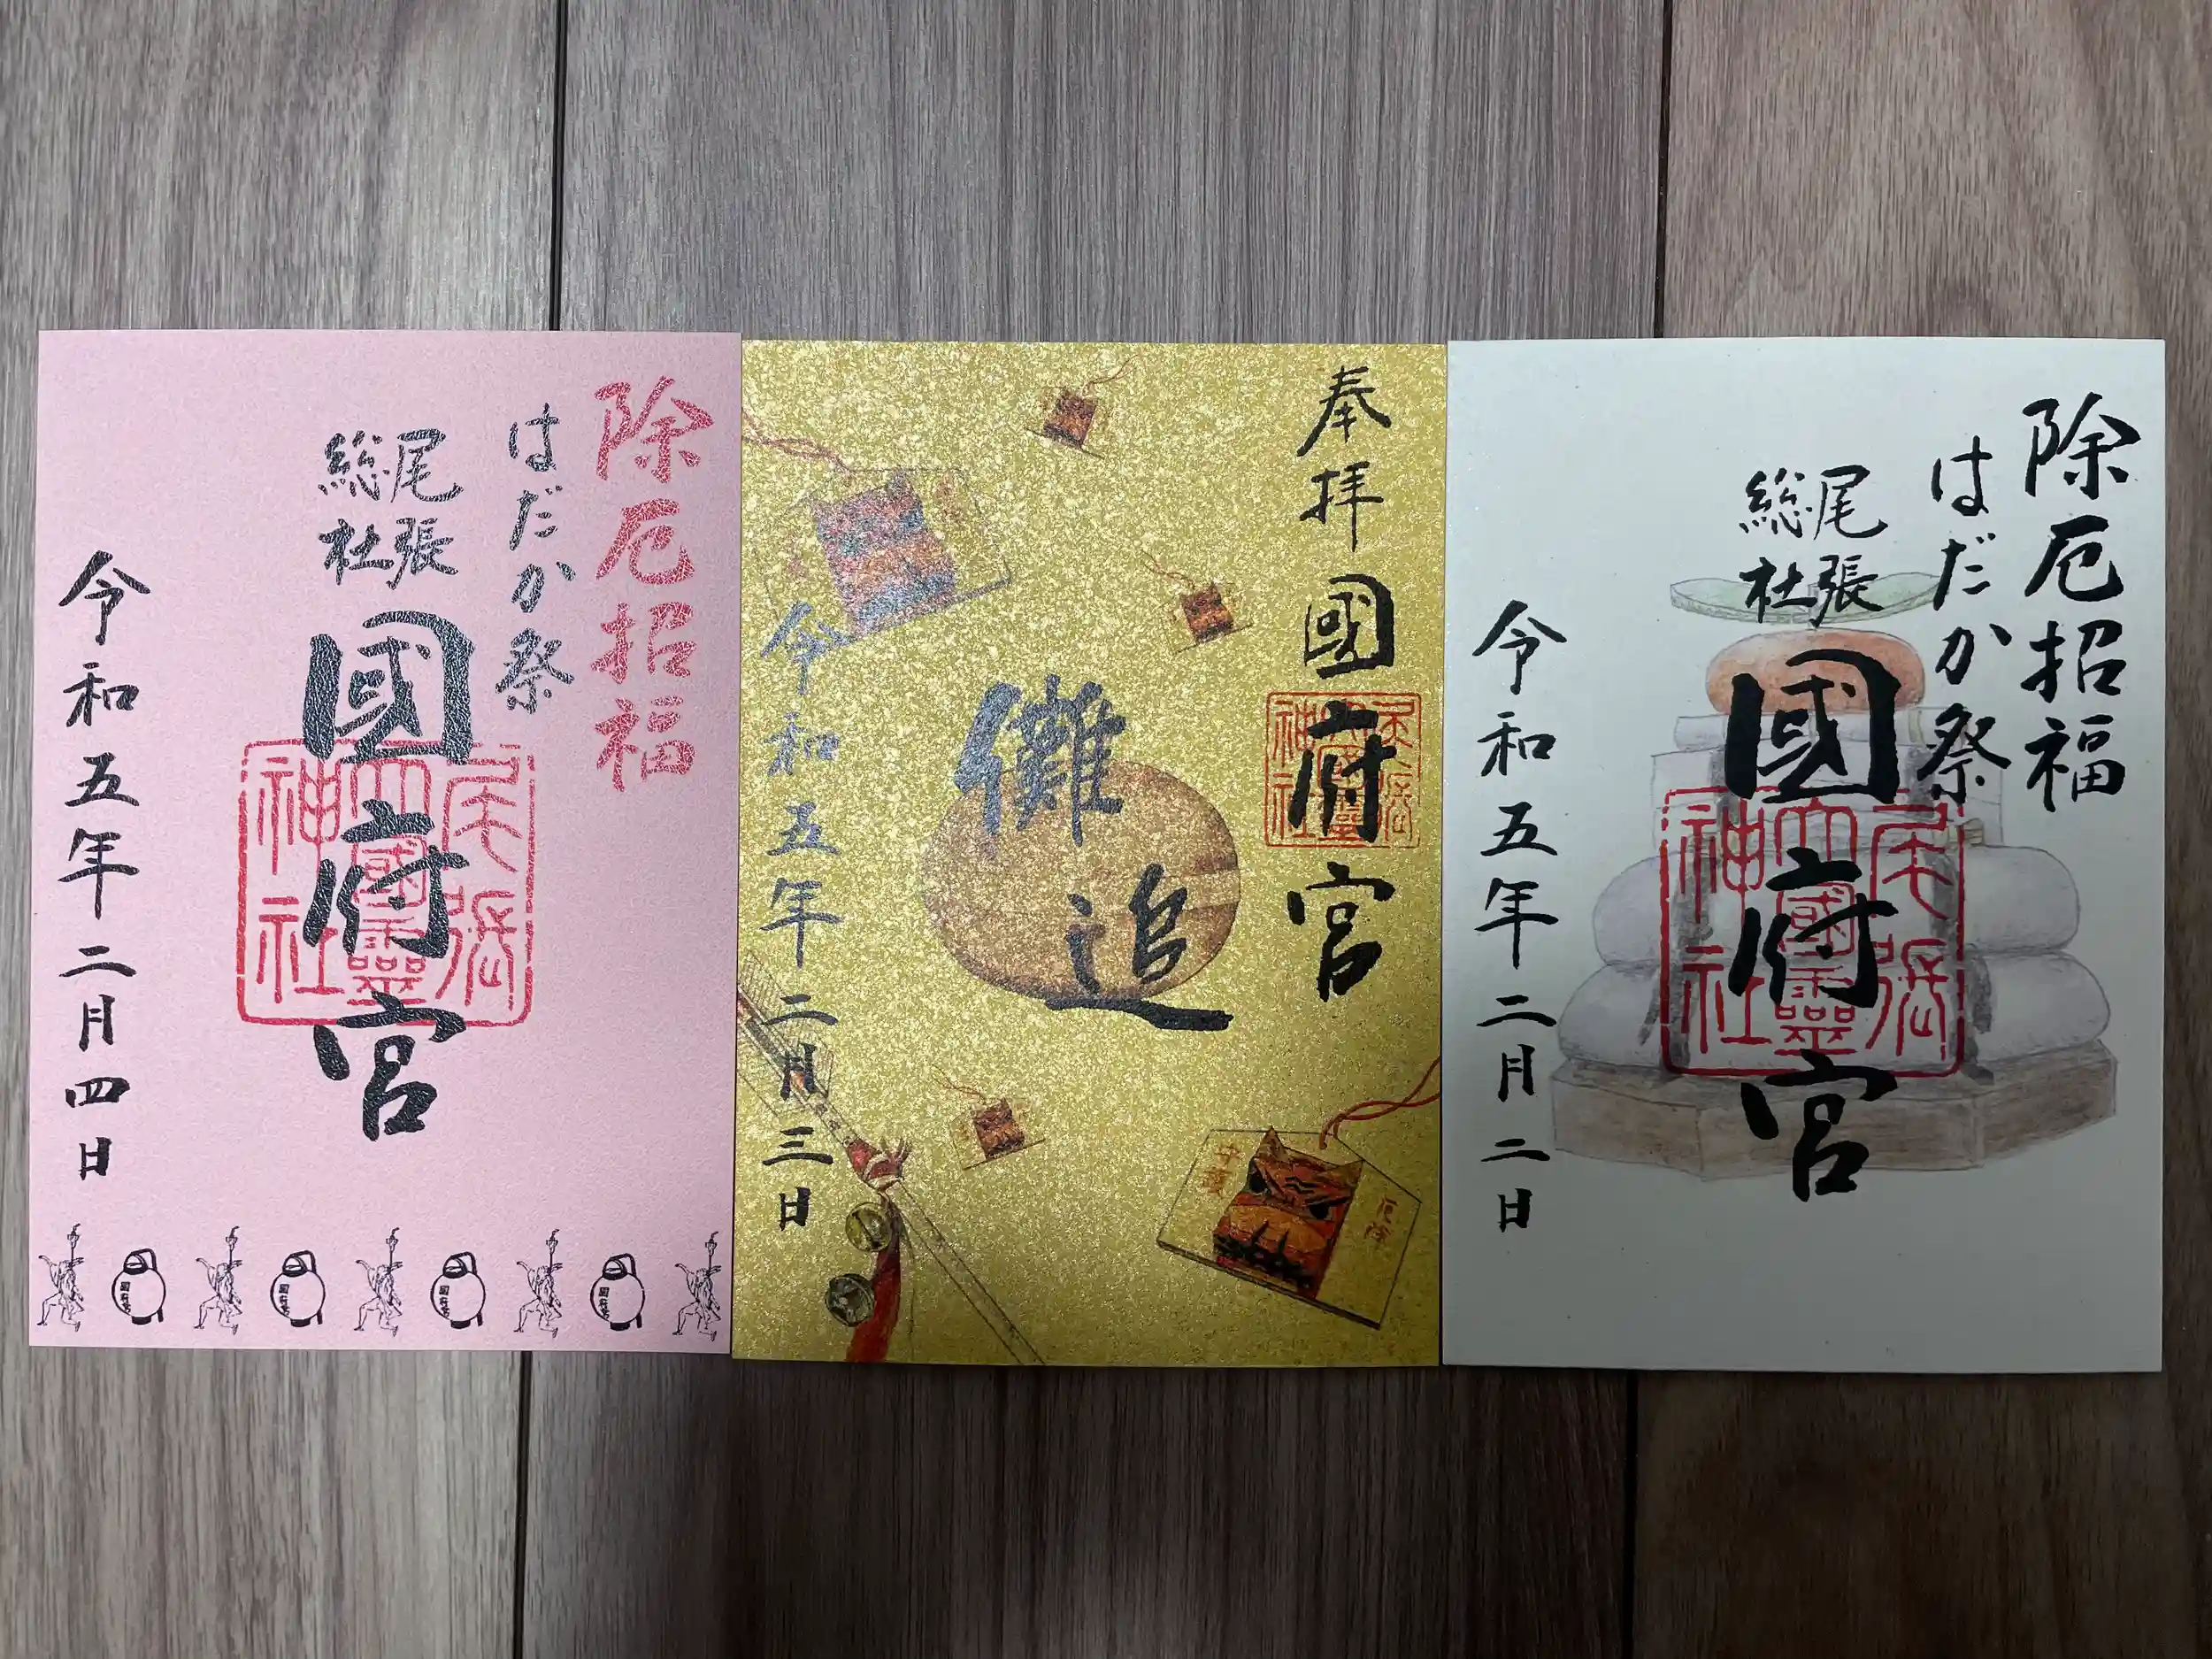 除厄招福
はだか祭
尾張
総社
國府宮
尾張
大國霊
神社
令和五年二月四日
國府宮
國府宮
國府宮
國府宮
奉拝
國府宮
尾張
大國霊
神社
儺追
令和五年二月三日
厄除
守護
除厄招福
はだか祭
尾張
総社
國府宮
尾張
大國霊
神社
令和五年二月二日